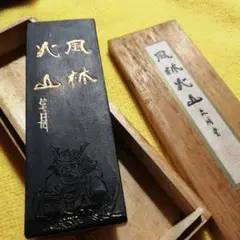 風林
火山
風林火山